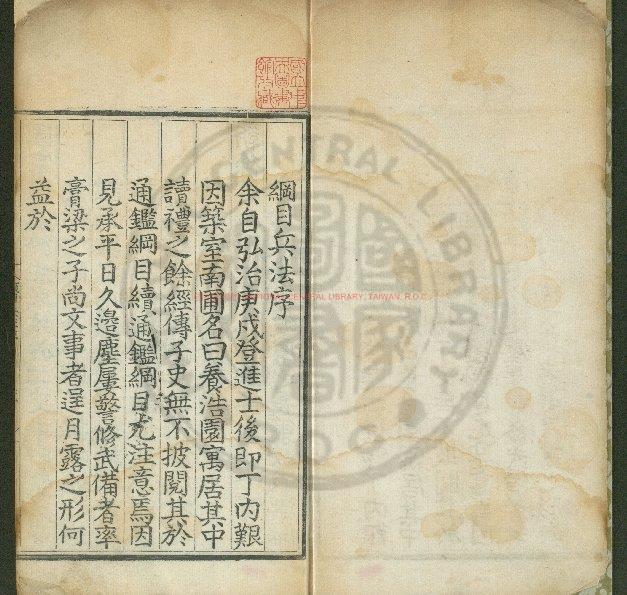 綱目兵法序
余自弘治庚戌登進士後即丁內艱
因築室南圃名曰養浩園寓居其中
讀禮之餘經傳子史無不披閱其於
通鑑綱目續通鑑綱目尤注意焉因
見承平日久邊塵屢警修武備者率
膏梁之子尚文事者逞月露之形何
益於
CENTRAL LIBRARY
R.O.C
CENTRAL LIBRARY, TAIWAN, R.O.C